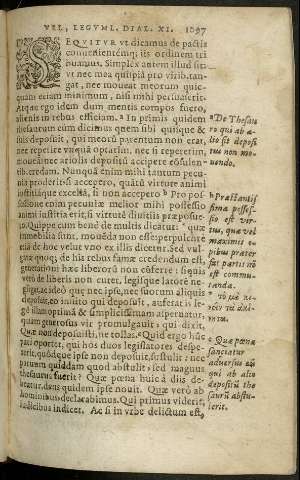 VEL, LEGVMI. DIAL. XI. 1097
SEQVITVR vt dicamus de pactis
Simplex autem illud sit:
vt nec mea quispiã pro virib. tan-
gat, nec moueat meorum quic-
quam etiam minimum, nisi mihi persuaserit.
ego idem dum mentis compos fuero,
alienis in rebus efficiam. a In primis quidem
thesaurum eum dicimus quem sibi quisque &
suis deposuit, qui meorũ parentum non erat,
nec reperire vnquã optarim, nec si repererim,
credam. Nunquã enim mihi tantum pecu-
nia proderit si accepero, quãtũ virtute animi
iustitiáque excellã, si non accepero b Pro pos-
sessione enim pecuniæ melior mihi possessio
animi iustitia erit, si virtutẽ diuitiis præposue-
ro. Quippe cum benè de multis dicatur: c quæ
immobilia sunt, mouẽda non esse: perpulchrè
etiã de hoc velut vno ex illis dicetur. Sed vul-
gatæ quoq; de his rebus famæ credendum est,
generationi hæc liberorũ non cõferre: siquis
verò de liberis non curet, legisque latorẽ ne-
gligat, & id eò quę nec ipse, nec suorum aliquis
deposuit, eo inuito qui deposuit, auferat: is le-
gẽ illam optimã & simplicissimam aspernatur,
quam generosus vir promulgauit, qui dixit,
Quæ non deposuisti, ne tollas. d Quid ergo hũc
pati oportet, qui hos duos legislatores despe-
xerit, quódque ipse non deposuit, sustulit: nec
paruum quiddam quod abstulit, sed magnus
thesaurus fuerit? Quæ pœna huic à diis de-
beatur, deus quidem ipse nouit. Quæ verò ab
hominibus, declarabimus. Qui primus viderit,
iudicibus indicet. Ac si in vrbe delictum est,
a De Thesau
ro qui ab a-
lio sit deposi
tus non mo-
uendo.
b Præstantis
sima posses-
sio est vir-
tus, quæ vel
maximis o-
pibus prater
fat parti nõ
est commu-
tanda.
c τὸ μὴ κι-
νεῖν τὰ ἀκί-
νητα.
d Quæ pœna
sanctatur
aduersus eũ
qui ab alio
depositũ the
saurũ abstu-
lerit.